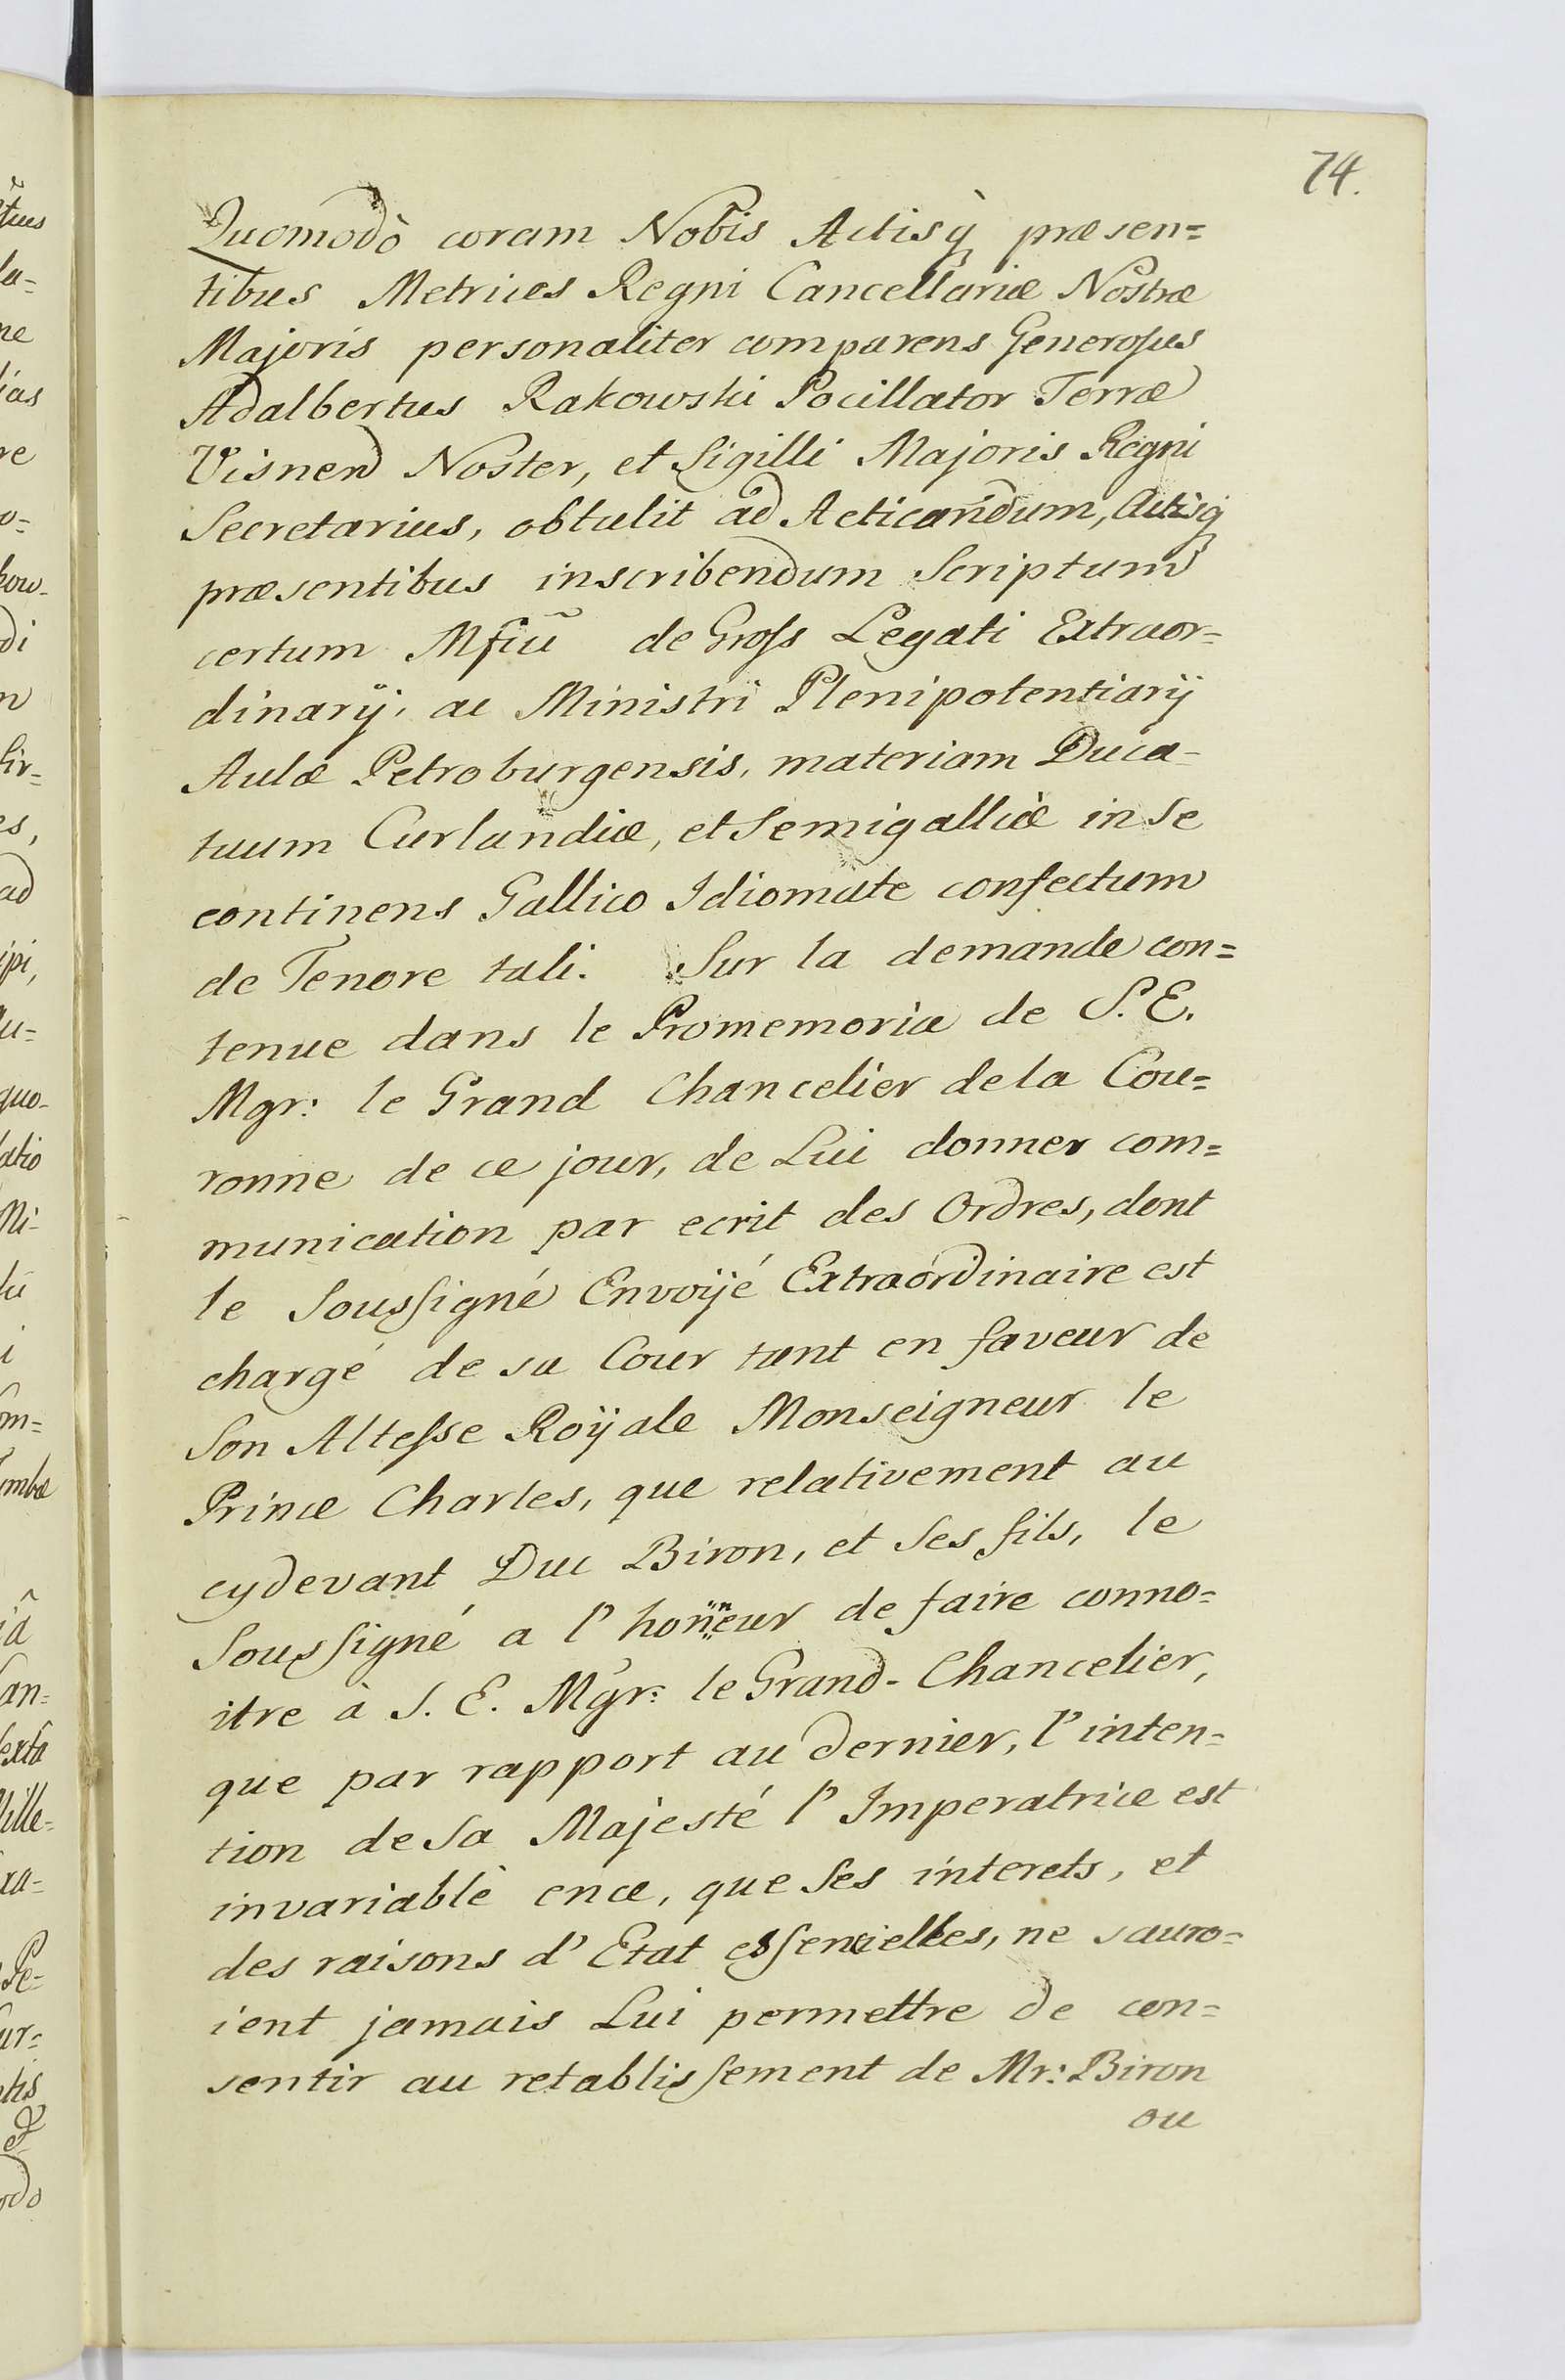 74.
Quomodò coram Nobis Actisq̀ præsen=
tibus Metrices Regni Cancellariæ Nostræ
Majoris personaliter comparens Generosus
Adalbertus Rakowski Pocillator Terræ
Visnen Noster, et Sigilli Majoris Regni
Secretarius, obtulit ad Acticandum, Actisq
præsentibus inscribendum Scriptum
certum Mfiũ de Gross Legati Extraor=
dinarÿ, ac Ministri Plenipotentiarÿ
Aulæ Petroburgensis, materiam Duca-
tuum Curlandiæ, et Semigalliæ in se
continens Gallico Idiomate confectum
de Tenore tali. Sur la demande con=
tenue dans le Promemoria de S. E.
Mgr: le Grand Chancelier de la Cou=
ronne de ce jour, de Lui donner com=
munication par ecrit des Ordres, dont
le Soussigné Envoÿé Extraordinaire est
chargé de sa Cour tant en faveur de
Son Altesse Roÿale Monseigneur le
Prince Charles, que relativement au
cydevant Duc Biron, et Ses fils, le
Soussigné a l'honneur de faire conno=
itre à S. E. Mgr: le Grand-Chancelier,
que par rapport au dernier, l'inten=
tion de Sa Majesté l'Imperatrice est
invariable ence, que Ses interets, et
des raisons d'Etat essencielles, ne sauro=
ient jamais Lui permettre de con=
sentir au retablissement de Mr: Biron
ou